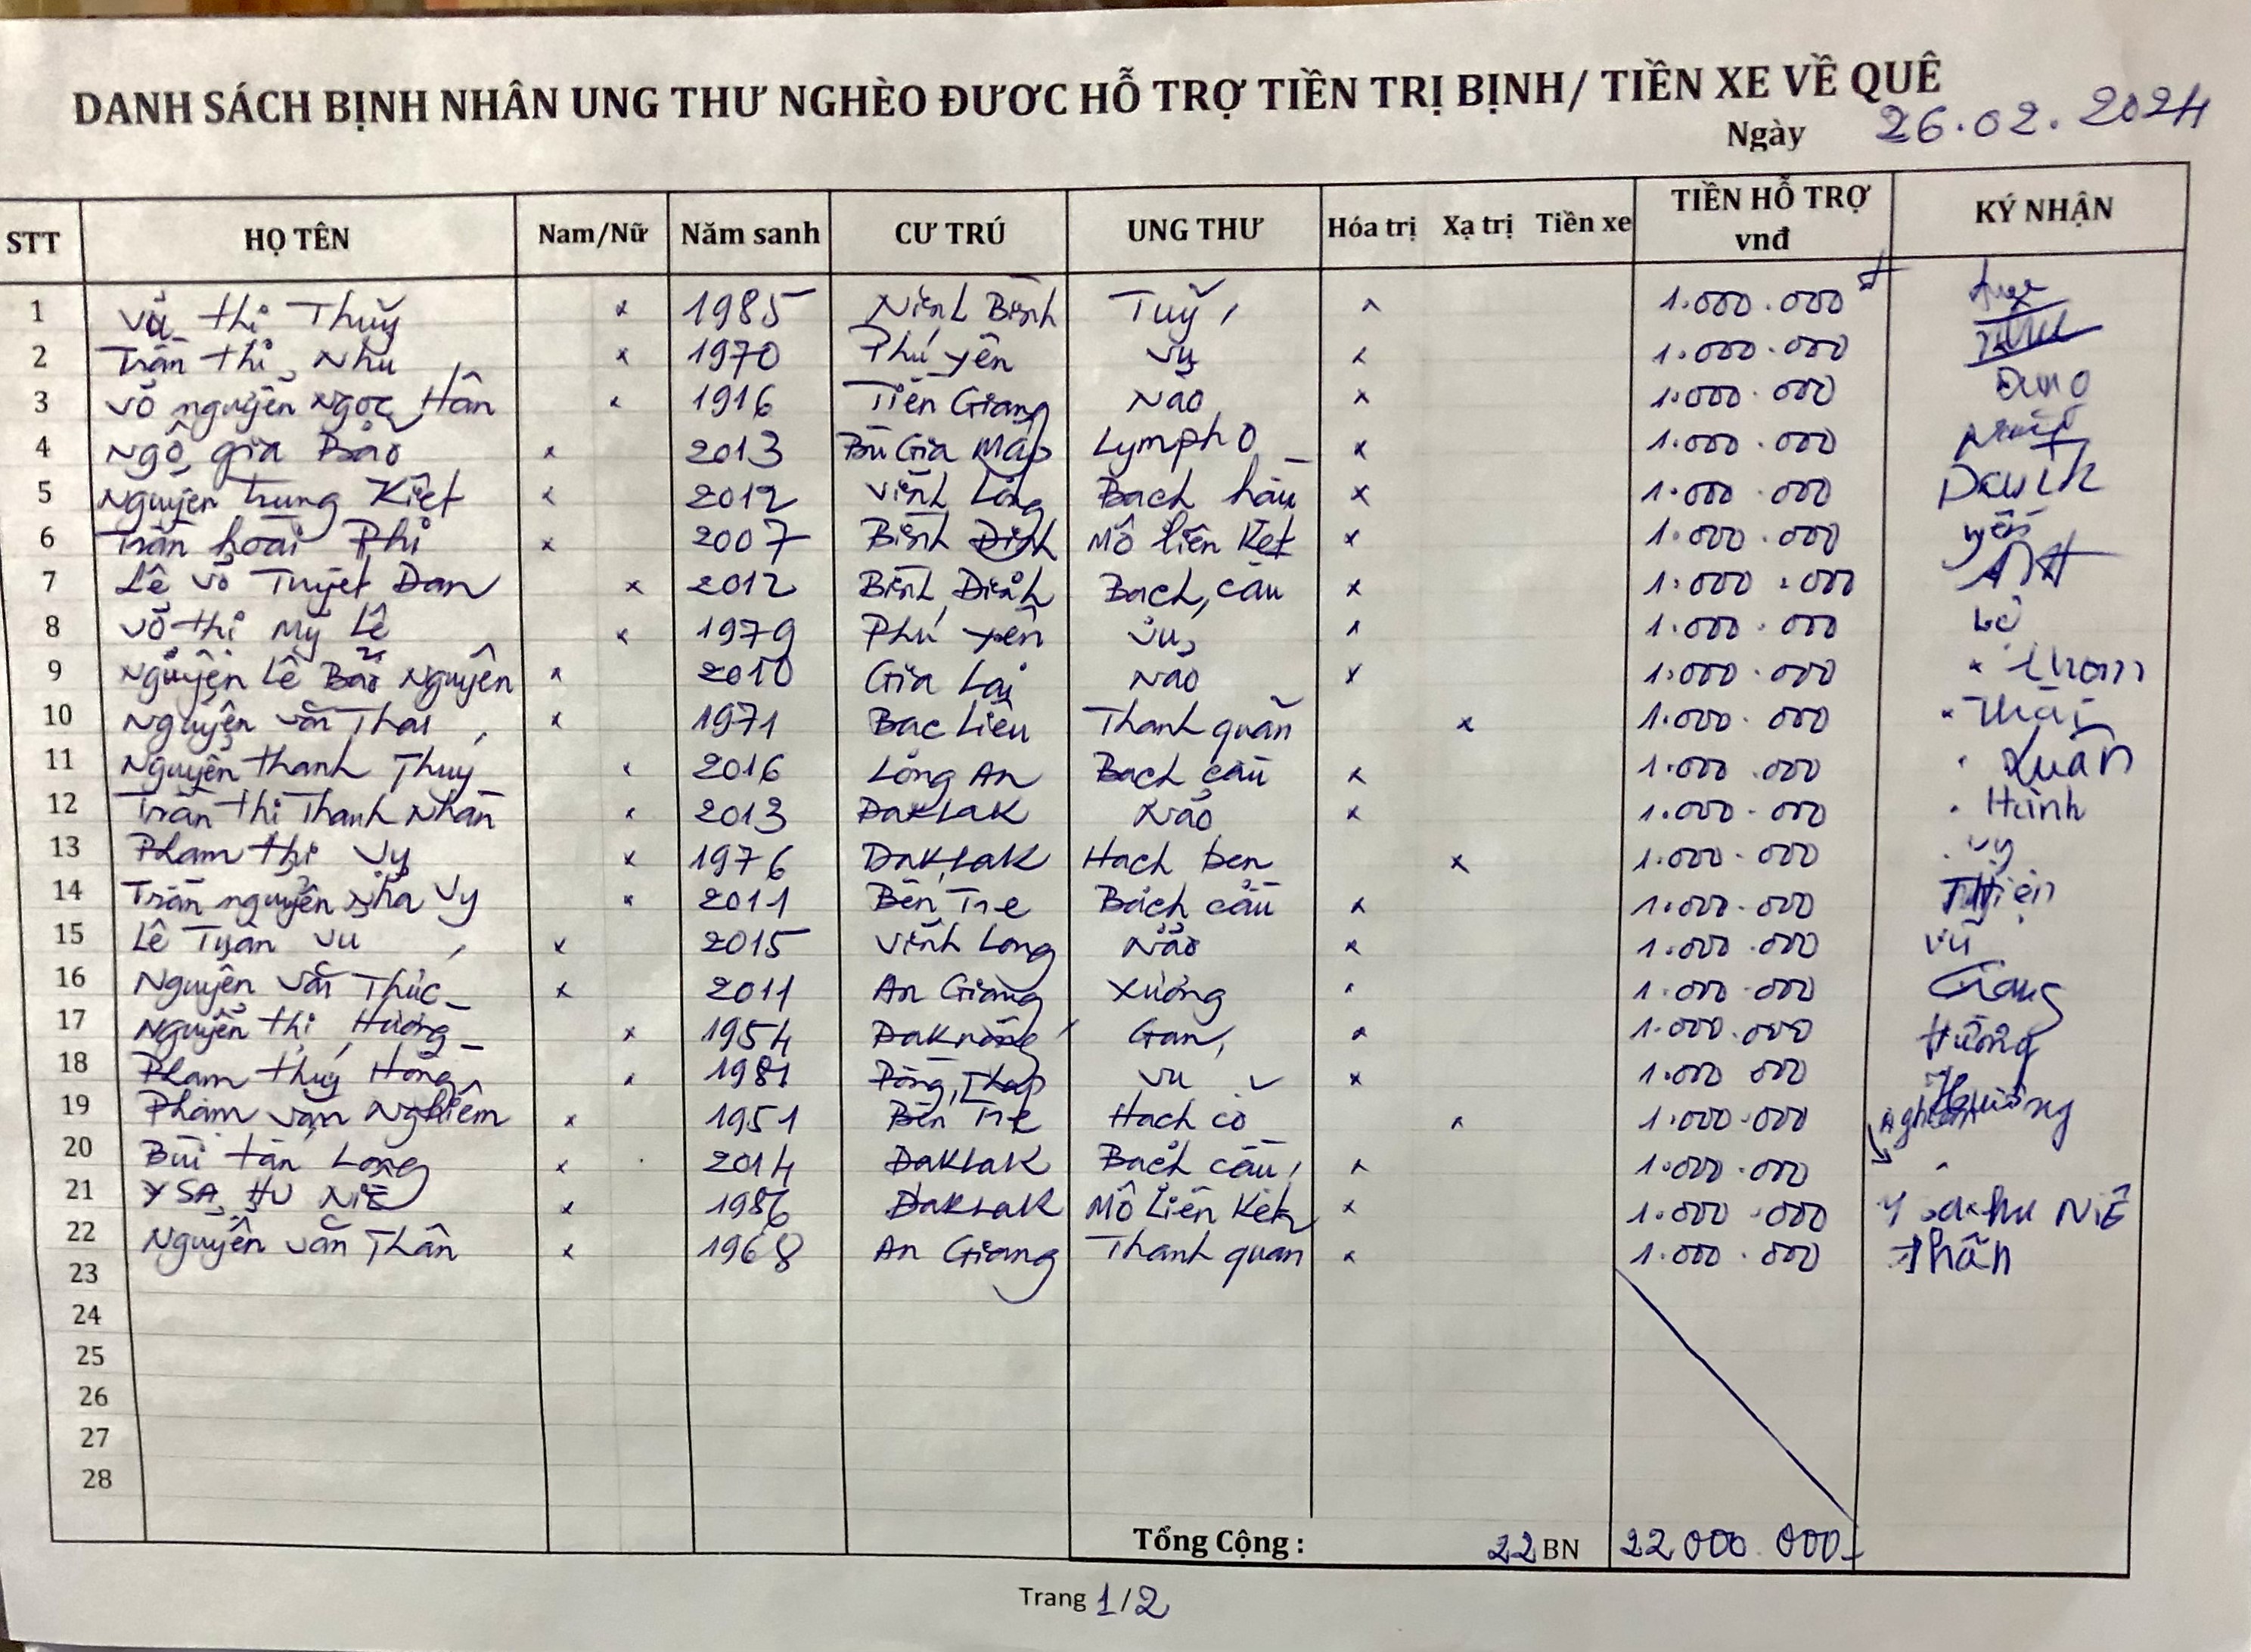 DANH SÁCH BỊNH NHÂN UNG THƯ NGHÈO ĐƯƠC HỖ TRỢ TIỀN TRỊ BỊNH/ TIỀN XE VỀ QUÊ
Ngày 26.02.2024
STT HỌ TÊN Nam/Nữ Năm sanh CƯ TRÚ UNG THƯ Hóa trị Xạ trị Tiền xe TIỀN HỖ TRỢ vnđ KÝ NHẬN
1 thị Thuỷ x 1985 Ninh Bình Tuỷ x 1.000.000đ
2 Trần thị Như x 1970 Phú yên Vú x 1.000.000
3 Võ nguyễn Ngọc Hân x 1916 Tiền Giang Não x 1.000.000 Dung
4 Ngô gia Bảo x 2013 Bù Gia Mập Lympho x 1.000.000
5 Nguyễn trung Kiệt x 2012 Vĩnh Long Bạch hầu x 1.000.000
6 Trần hoài Phi x 2007 Bình Định Mô liên Kết x 1.000.000 yến
7 Lê Võ Tuyết Đan x 2012 Bình Định Bạch cầu x 1.000.000
8 Võ thị Mỹ Lệ x 1979 Phú yên Vú x 1.000.000 Lệ
9 Nguyễn Lê Bảo Nguyên x 2010 Gia Lai Não x 1.000.000 x
10 Nguyễn văn Thái x 1971 Bạc Liêu Thanh quản x 1.000.000 x Thái
11 Nguyễn thanh Thuý x 2016 Long An Bạch cầu x 1.000.000 Xuân
12 Trần thị Thanh Nhàn x 2013 DakLak Não x 1.000.000 Hành
13 Phạm thị Vy x 1976 DakLak Hạch bẹn x 1.000.000 Vy
14 Trần nguyễn Nhã Vy x 2011 Bến Tre Bạch cầu x 1.000.000
15 Lê Tuấn Vũ x 2015 Vĩnh Long Não x 1.000.000 Vũ
16 Nguyễn Văn Thức x 2011 An Giang Xương x 1.000.000 Giang
17 Nguyễn thị Hường x 1954 Daknông Gan x 1.000.000 Hường
18 Phạm thuý Hồng x 1981 Đồng Tháp Vú x 1.000.000
19 Phạm văn Nghiêm x 1951 Bến Tre Hạch cổ x 1.000.000
20 Bùi tấn Long x 2014 DakLak Bạch cầu x 1.000.000
21 Y SA HU NIÊ x 1986 DakLak Mô Liên Kết x 1.000.000 NIÊ
22 Nguyễn văn Thân x 1968 An Giang Thanh quản x 1.000.000 Thân
23
24
25
26
27
28
Tổng Cộng : 22 BN 22 000.000
Trang 1/2